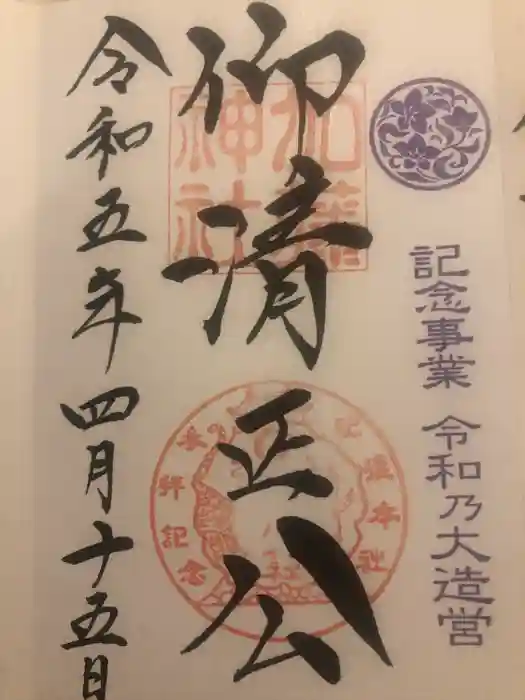 記念事業 令和乃大造営
仰清正公
加藤神社
参拝記念
令和五年四月十五日